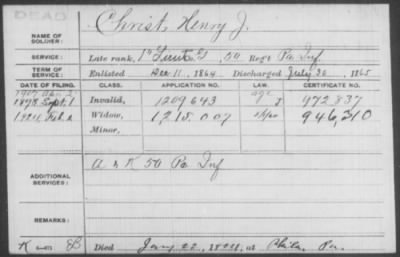 DEAD
Christ, Henry J.
NAME OF SOLDIER:
SERVICE: Late rank, 1st Lieut G, 50 Regt Pa. Inf.
TERM OF SERVICE: Enlisted Dec 11, 1864 Discharged July 30, 1865
DATE OF FILING. CLASS. APPLICATION NO. LAW. CERTIFICATE NO.
1907 Apr 2 age
1898 Sept. 1 Invalid, 1209643 972837
Feb. 2 Widow, 1215.007 946,310
Minor,
ADDITIONAL SERVICES: A & K 50 Pa Inf
REMARKS:
K Died Jany 22, at Phila. Pa.